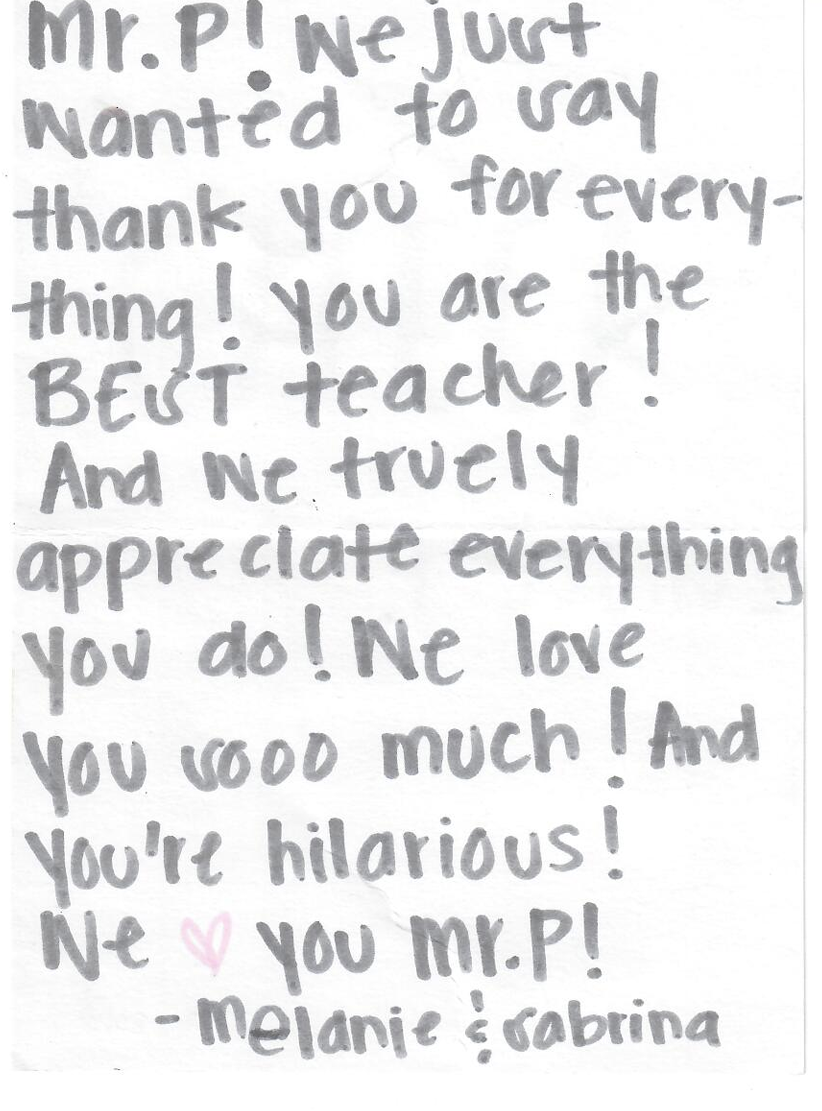 Mr. P! We just
wanted to say
thank you for every-
thing! you are the
BEST teacher!
And we truely
appreciate everything
you do! We love
you sooo much! And
you're hilarious!
We ♡ you Mr. P!
- Melanie & Sabrina